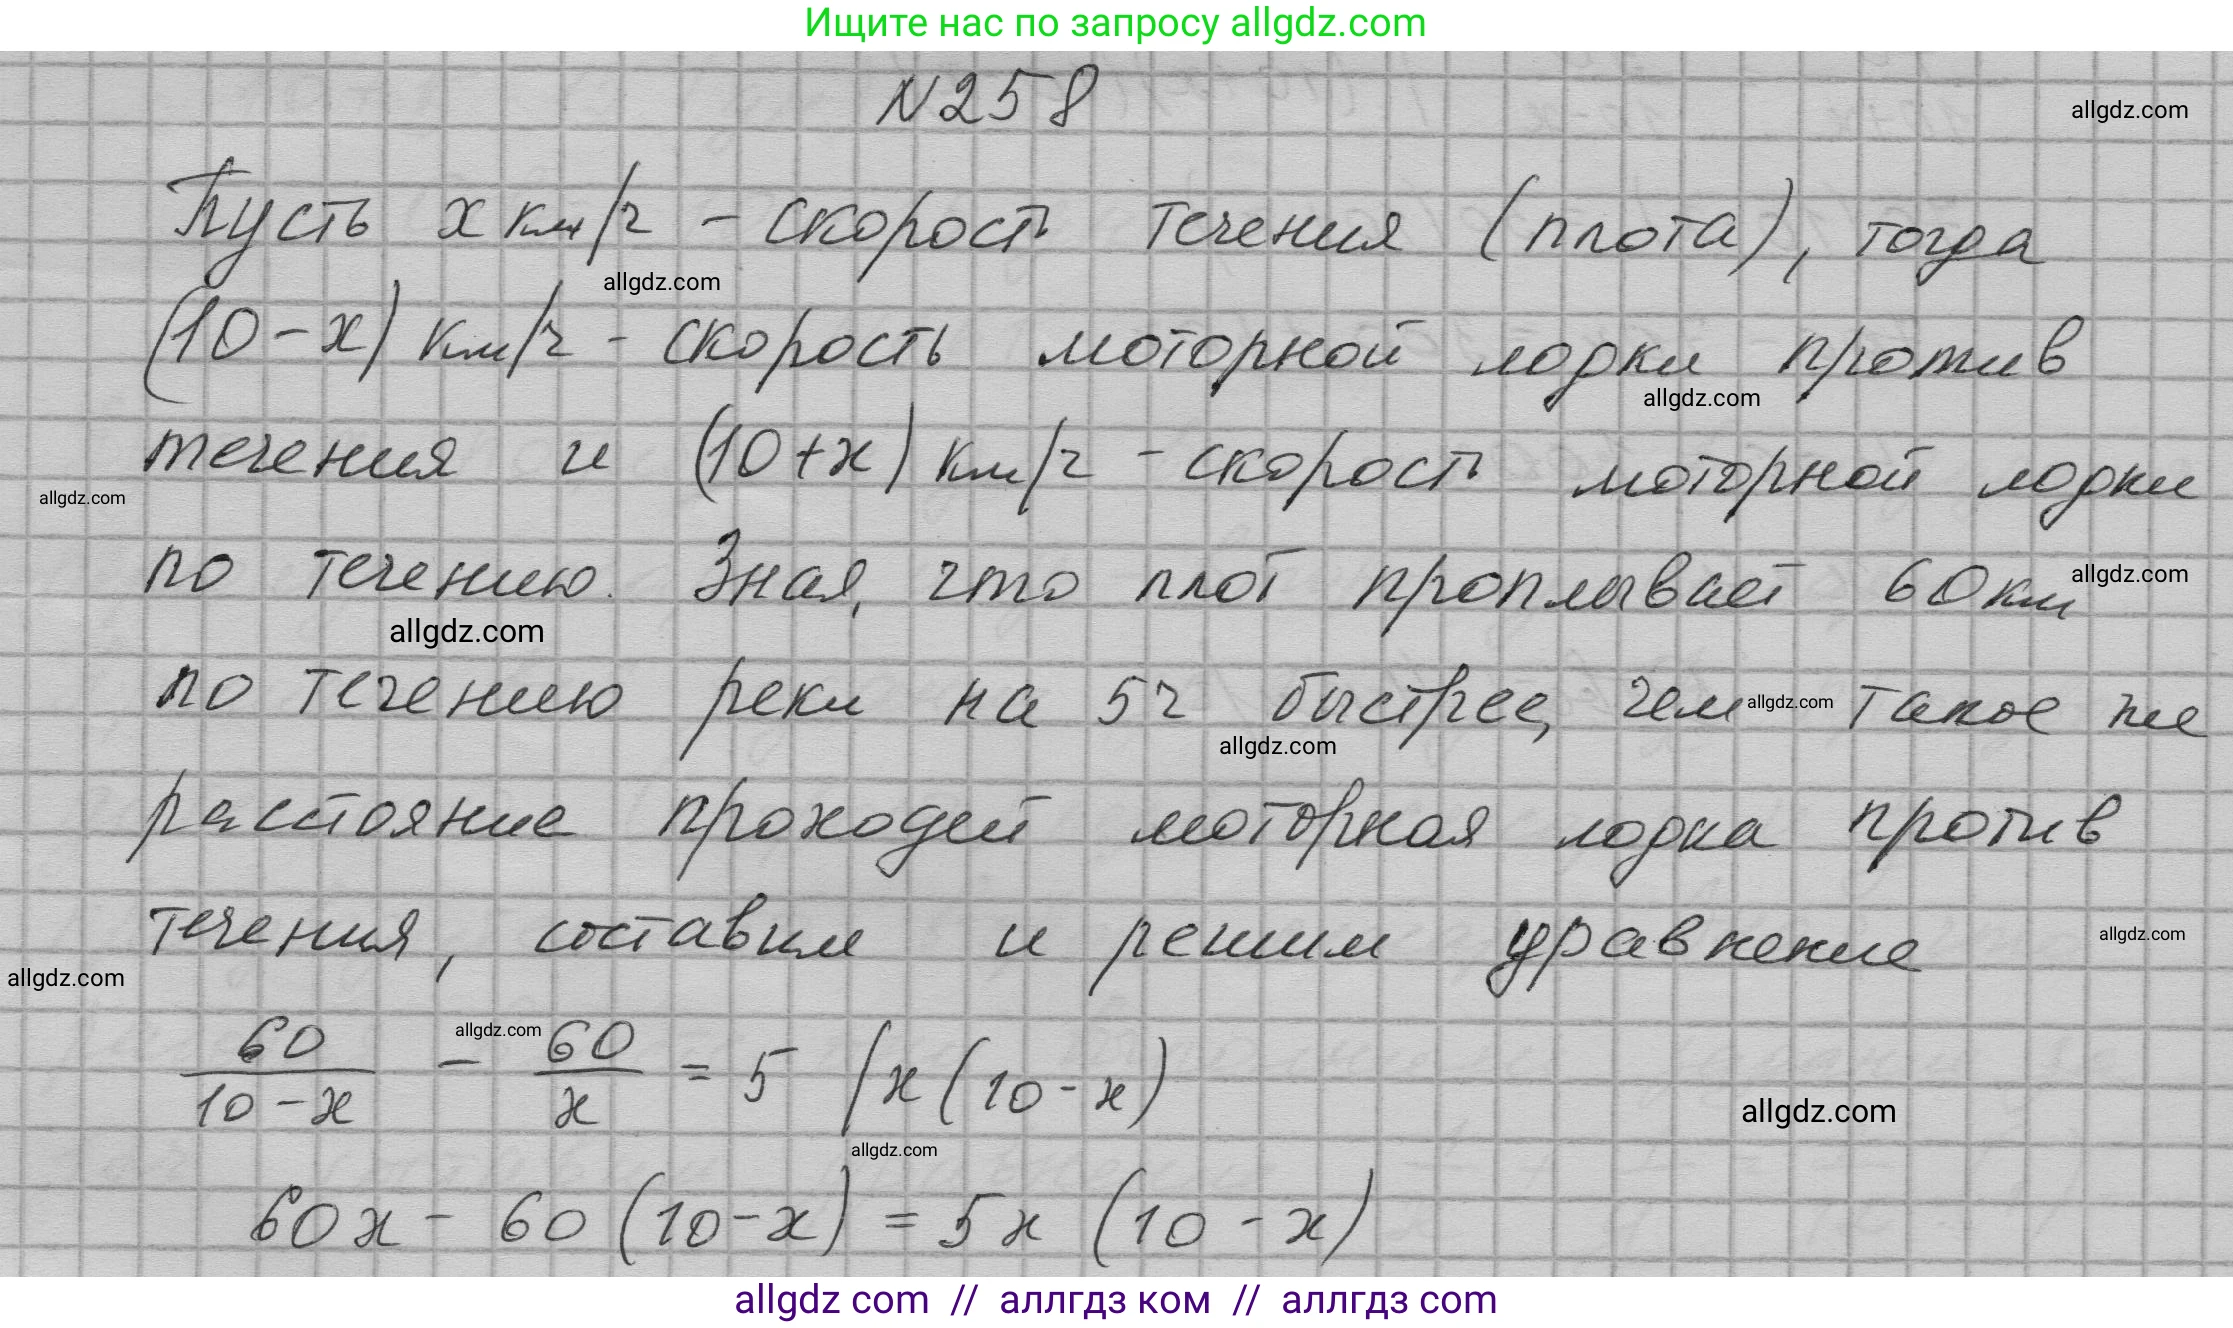 Ищите нас по запросу allgdz.com
N258
allgdz.com
Пусть x км/ч - скорость течения (плота), тогда
allgdz.com
(10-x) км/ч - скорость моторной лодки против
allgdz.com
течения и (10+x) км/ч - скорость моторной лодки
allgdz.com
по течению. Зная, что плот проплывает 60км
allgdz.com
allgdz.com
по течению реки на 5ч быстрее, чем такое же
allgdz.com
allgdz.com
расстояние проходит моторная лодка против
течения, составим и решим уравнение
allgdz.com
allgdz.com
60/(10-x) - 60/x = 5 /x(10-x)
allgdz.com
allgdz.com
allgdz.com
60x - 60(10-x) = 5x (10-x)
allgdz com // аллгдз ком // аллгдз com